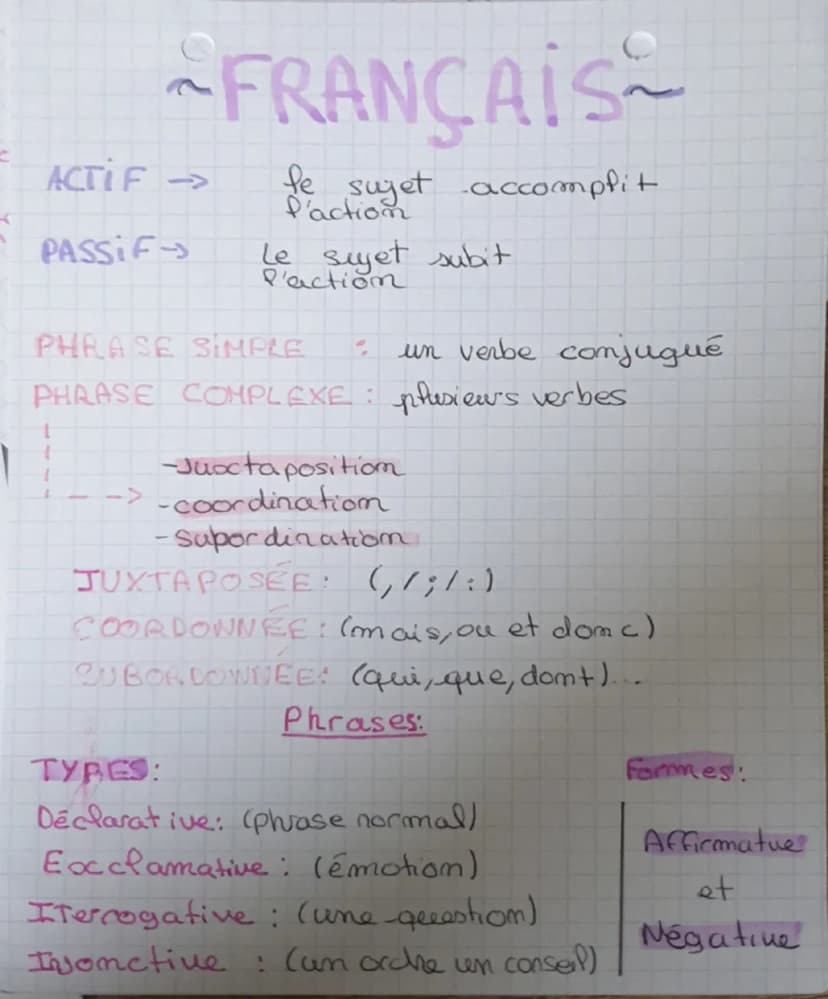 ~FRANÇAIS~
ACTIF → le sujet accomplit
l'action
PASSIF → Le sujet subit
l'action
PHRASE SIMPLE : un verbe conjugué
PHRASE COMPLEXE : plusieurs verbes
-Juxtaposition
-coordination
-subordination
JUXTAPOSÉE: (,/;/:)
COORDONNÉE: (mais, ou et donc)
SUBORDONNÉE: (qui, que, dont)...
Phrases:
TYPES: Formes:
Déclarative: (phrase normal)
Exclamative : (émotion) Affirmative
et
ITerrogative : (une question)
Négative
Injonctive : (un ordre un conseil)